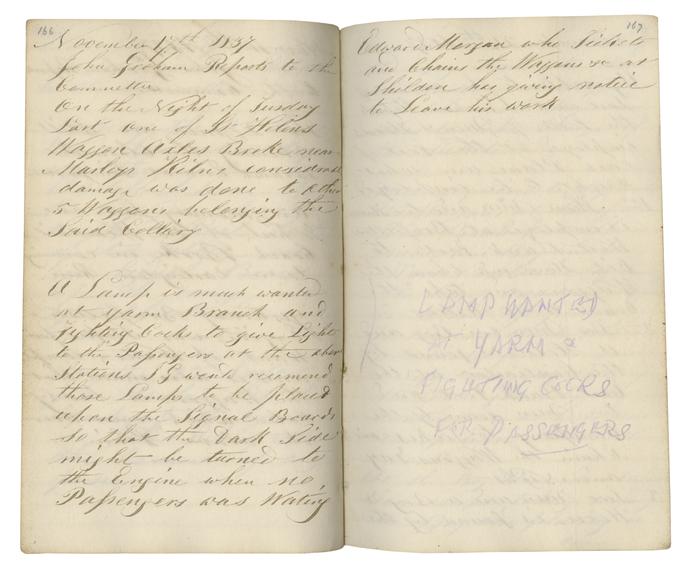 166
November 17th 1837
John Graham Reports to the
Committee
On the Night of Sunday
Last one of St Helens
Waggon Axles Broke near
Marleys Kilns considrable
damage was done to other
5 Waggons belonging the
Said Collary
A Lamp is much wanted
at yarm Branch and
fighting Cocks to give Light
to the Passengers at the above
Stations I G would recomend
those Lamps to be placed
upon the Signal Boards
So that the Dark Side
might be turned to
the Engine when no
Passengers was Wating
167
Edward Morgan who Tickets
and Chains the Waggons at
Shildon has giving notice
to Leave his work
LAMP WANTED
AT YARM &
FIGHTING COCKS
FOR PASSENGERS